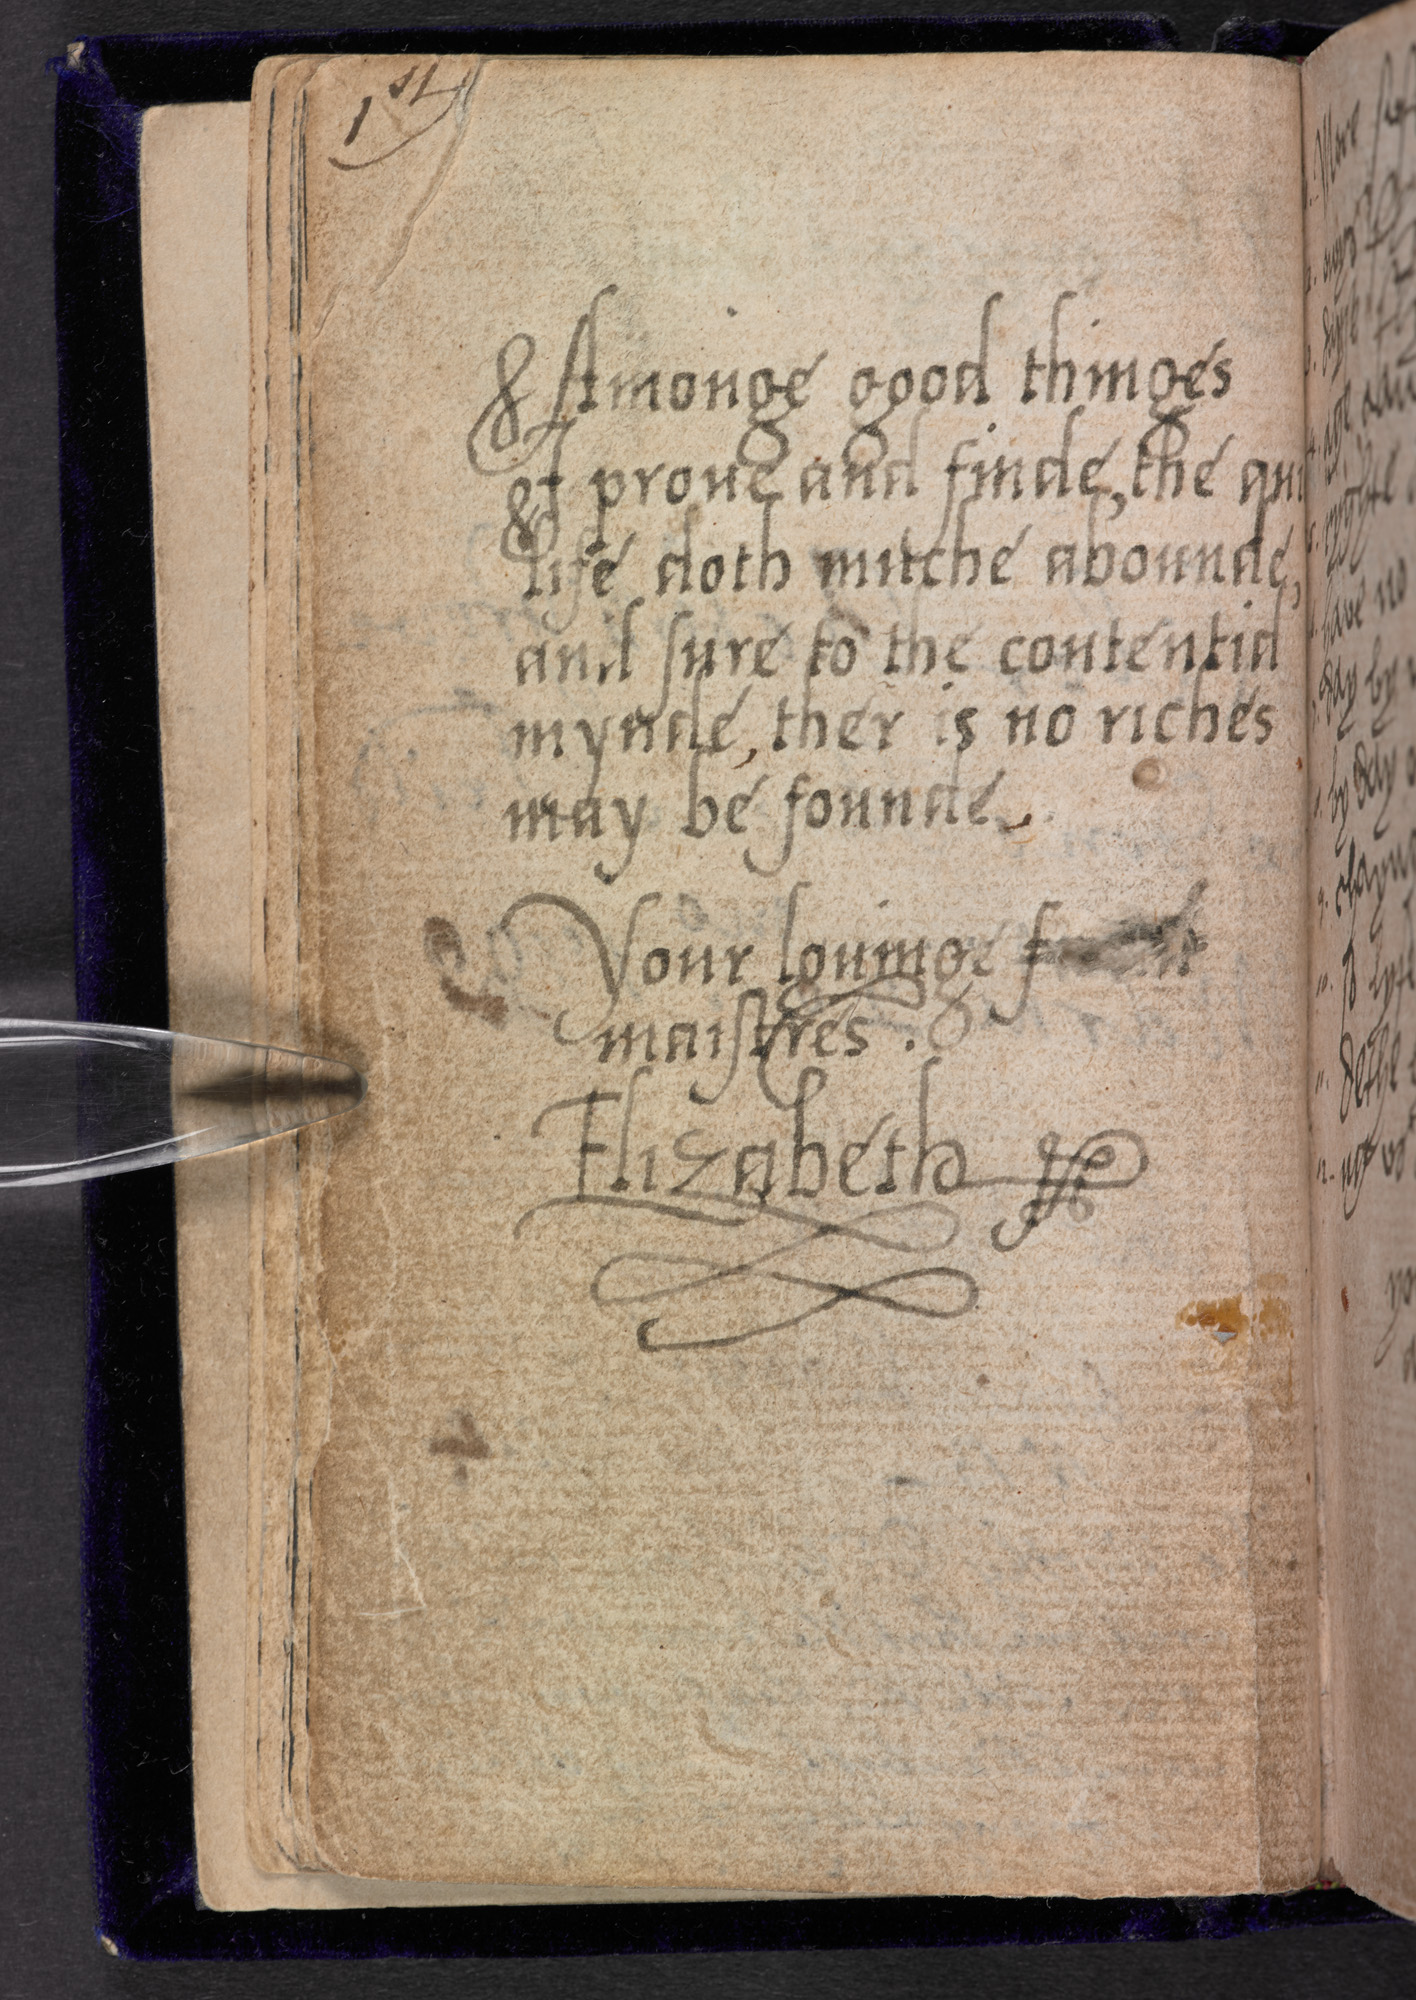 1st
Amonge good thinges
I proue and finde, the qui
life doth mutche abounde,
and sure to the contentid
mynde, ther is no riches
may be founde.
Your louinge
maistres.
Elizabeth